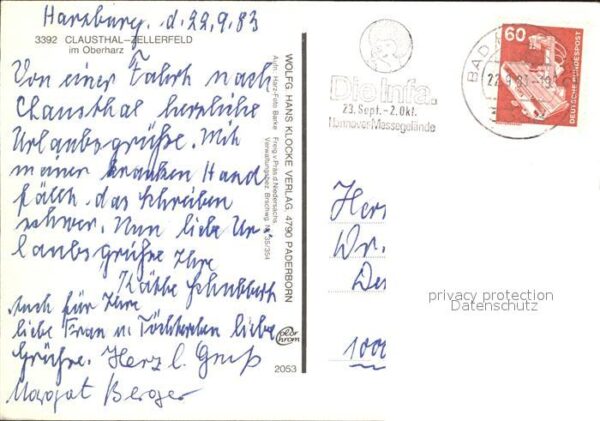 Harzburg. d. 22.9.83
3392 CLAUSTHAL-ZELLERFELD
im Oberharz
Von einer Fahrt nach
Clausthal herzliche
Urlaubsgrüße. Mit
meiner kranken Hand
fällt das Schreiben
schwer. Nun liebe Ur-
laubsgrüße Ihre
Käthe Schubbert
Auch für Ihre
liebe Frau u. Töchterchen liebe
Grüße. Herzl. Gruß
Margot Berger
WOLFG. HANS KLOCKE VERLAG, 4790 PADERBORN
Aufn. Harz-Foto Barke Freig. v. Präs. d. Niedersächs.
Verwaltungsbez. Brschwg. Nr. 35/354
color
chrom
2053
Die Infa.
23. Sept.-2. Okt.
Hannover-Messegelände
BAD
60
DEUTSCHE BUNDESPOST
Her
Dr.
De
100
privacy protection
Datenschutz